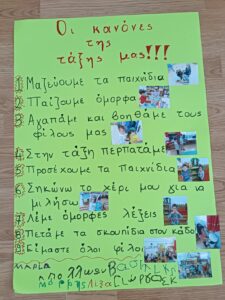 Οι κανόνες
της
τάξης μας!!!
1 Μαζεύουμε τα παιχνίδια
2 Παίζουμε όμορφα
3 Αγαπάμε και βοηθάμε τους
φίλους μας
4 Στην τάξη περπατάμε
5 Προσέχουμε τα παιχνίδια
6 Σηκώνω το χέρι μου για να
μιλήσω
7 Λέμε όμορφες λέξεις
8 Πετάμε τα σκουπίδια στον κάδο
9 Είμαστε όλοι φίλοι